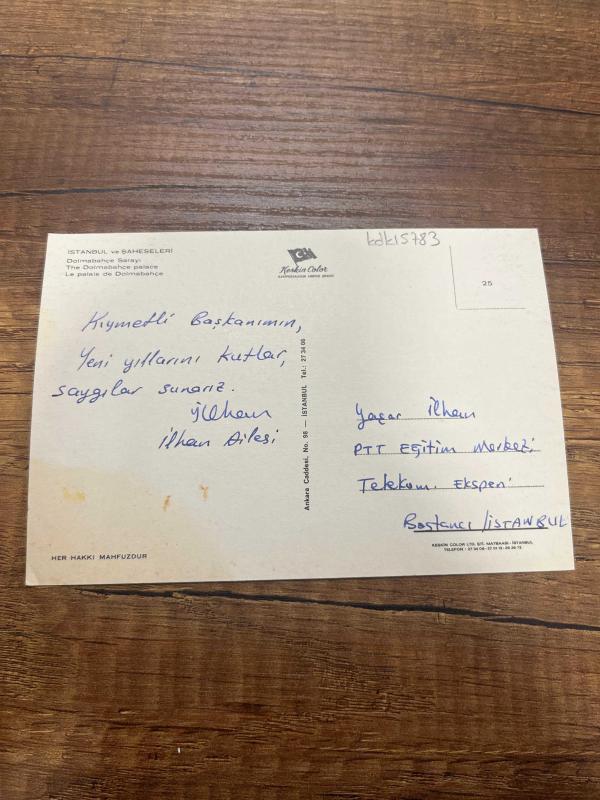 İSTANBUL ve ŞAHESELERİ
Dolmabahçe Sarayı
The Dolmabahçe palace
Le palais de Dolmabahçe
Keskin Color
kdk15783
25
Kıymetli Başkanımın,
Yeni yıllarını kutlar,
saygılar sunarız.
İlhan Ailesi
Ankara Caddesi, No. 98 — İSTANBUL Tel.: 27 34 06
Yaşar İlhan
PTT Eğitim Merkezi
Telekom. Eksperi
Bostancı / İSTANBUL
HER HAKKI MAHFUZDUR
KESKİN COLOR LTD. ŞTİ. MATBAASI - İSTANBUL